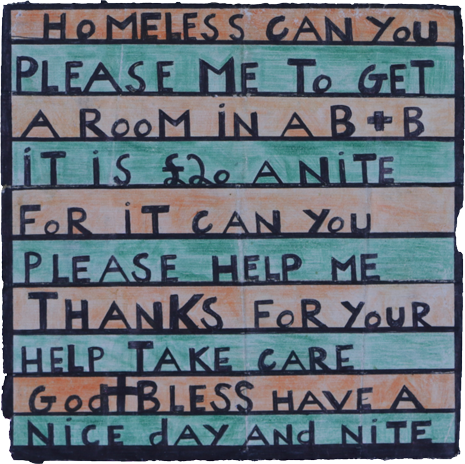 HOMELESS CAN YOU
PLEASE ME TO GET
A ROOM iN A B+B
iT iS £20 A NiTE
FOR iT CAN YOU
PLEASE HELP ME
THANKS FOR YOUR
HELP TAKE CARE
God✝BLESS HAVE A
NiCE dAY ANd NiTE